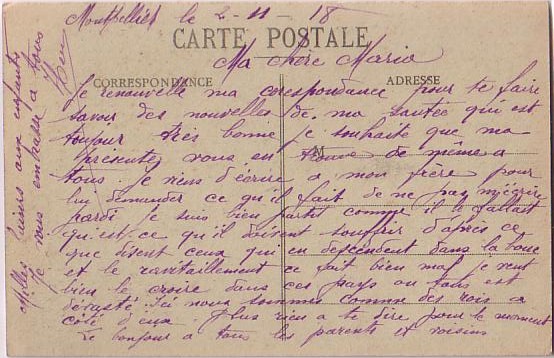 Montpellier le 2-11-18
CARTE POSTALE
Ma chère Maria
CORRESPONDANCE
ADRESSE
Je renouvelle ma corespondance pour te faire
savoir des nouvelles de ma santée qui est
toujour très bonne je souhaite que ma
M
presente vous en trouve de même a
tous. Je viens d'écrire a mon frère pour
lui demander ce qu'il fait de ne pas m'écrire
pardi je suis bien parti comme il le fallait
qu'est ce qu'il doivent souffrir d'après ce
que disent ceux qui en descendent dans la boue
et le ravitaillement ce fait bien mal je veut
bien le croire dans ces pays ou tous est
dévasté. Ici nous sommes comme des rois a
côté d'eux. Plus rien a te dire pour le moment
Le bonjour a tous les parents et voisins
Milles baisers aux enfants
Je vous embrasse a tous